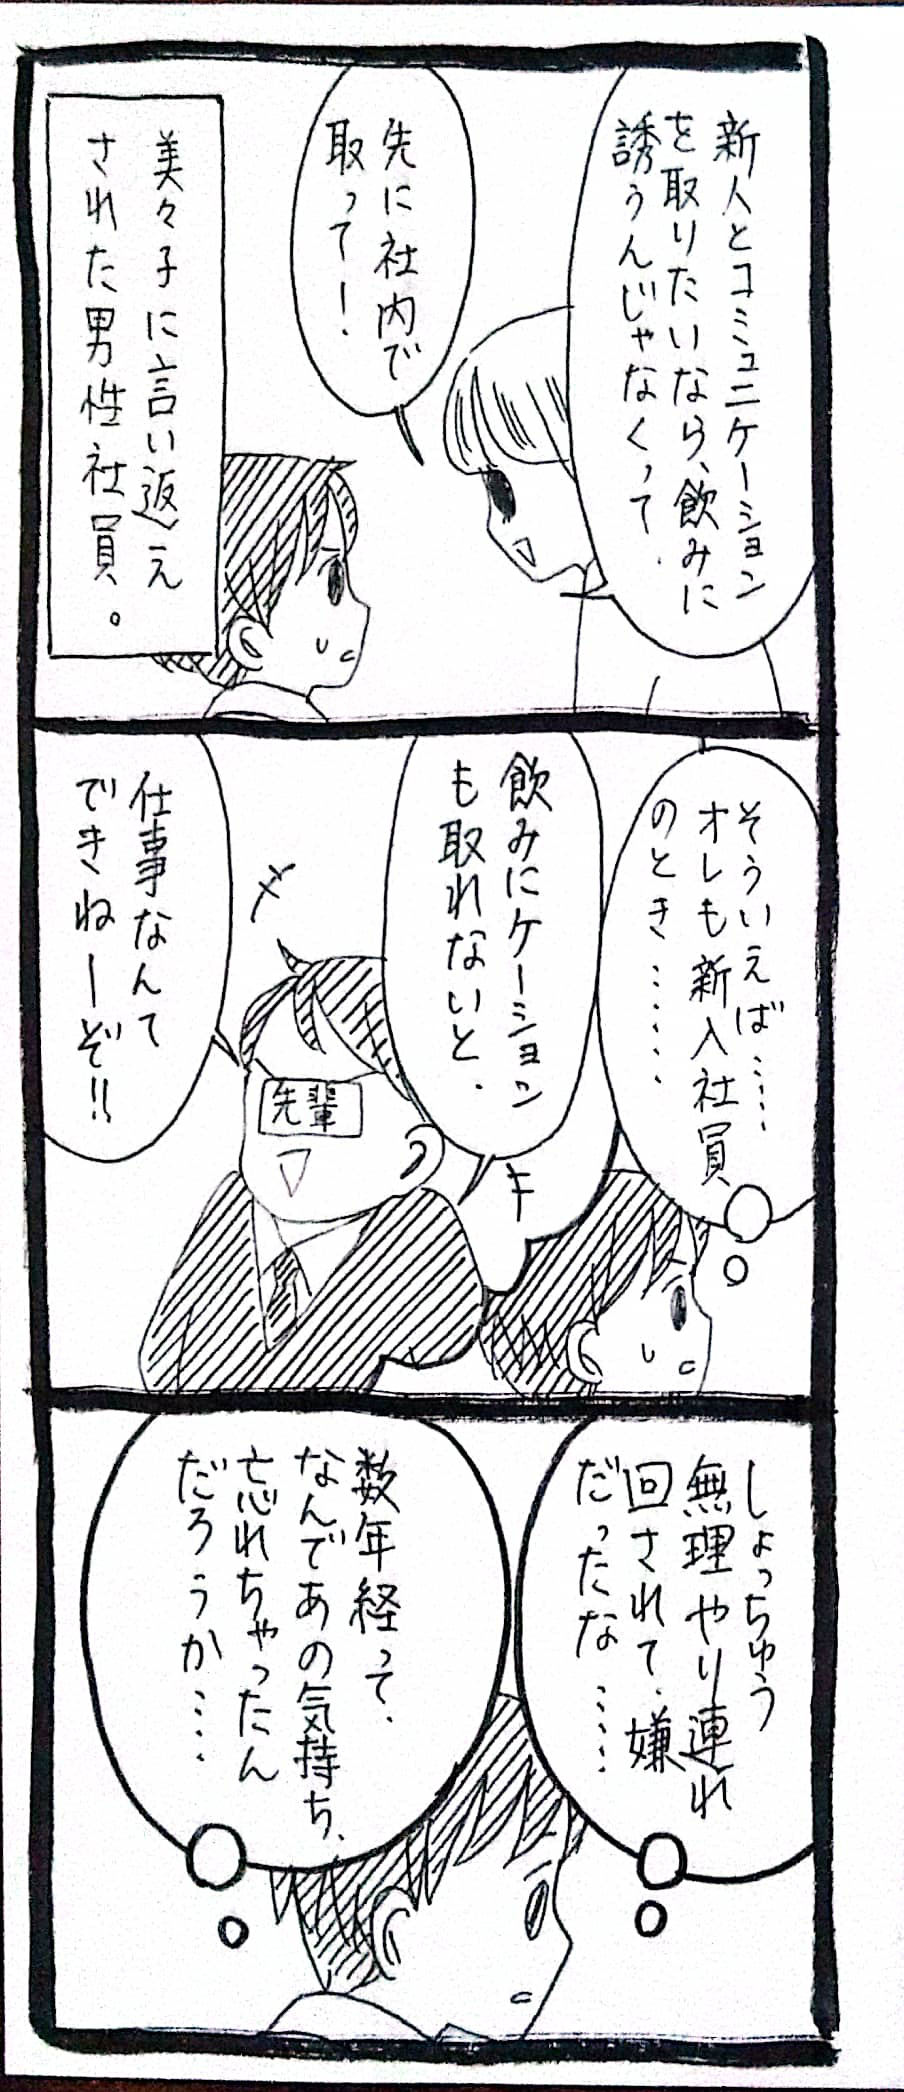 新人とコミュニケーション
を取りたいなら、飲みに
誘うんじゃなくって、
先に社内で
取って！
美々子に言い返え
された男性社員。
そういえば……
オレも新入社員
のとき……
飲みにケーション
も取れないと、
仕事なんて
できねーぞ!!
先輩
キ
しょっちゅう
無理やり連れ
回されて、嫌
だったな……
数年経って、
なんであの気持ち、
忘れちゃったん
だろうか……